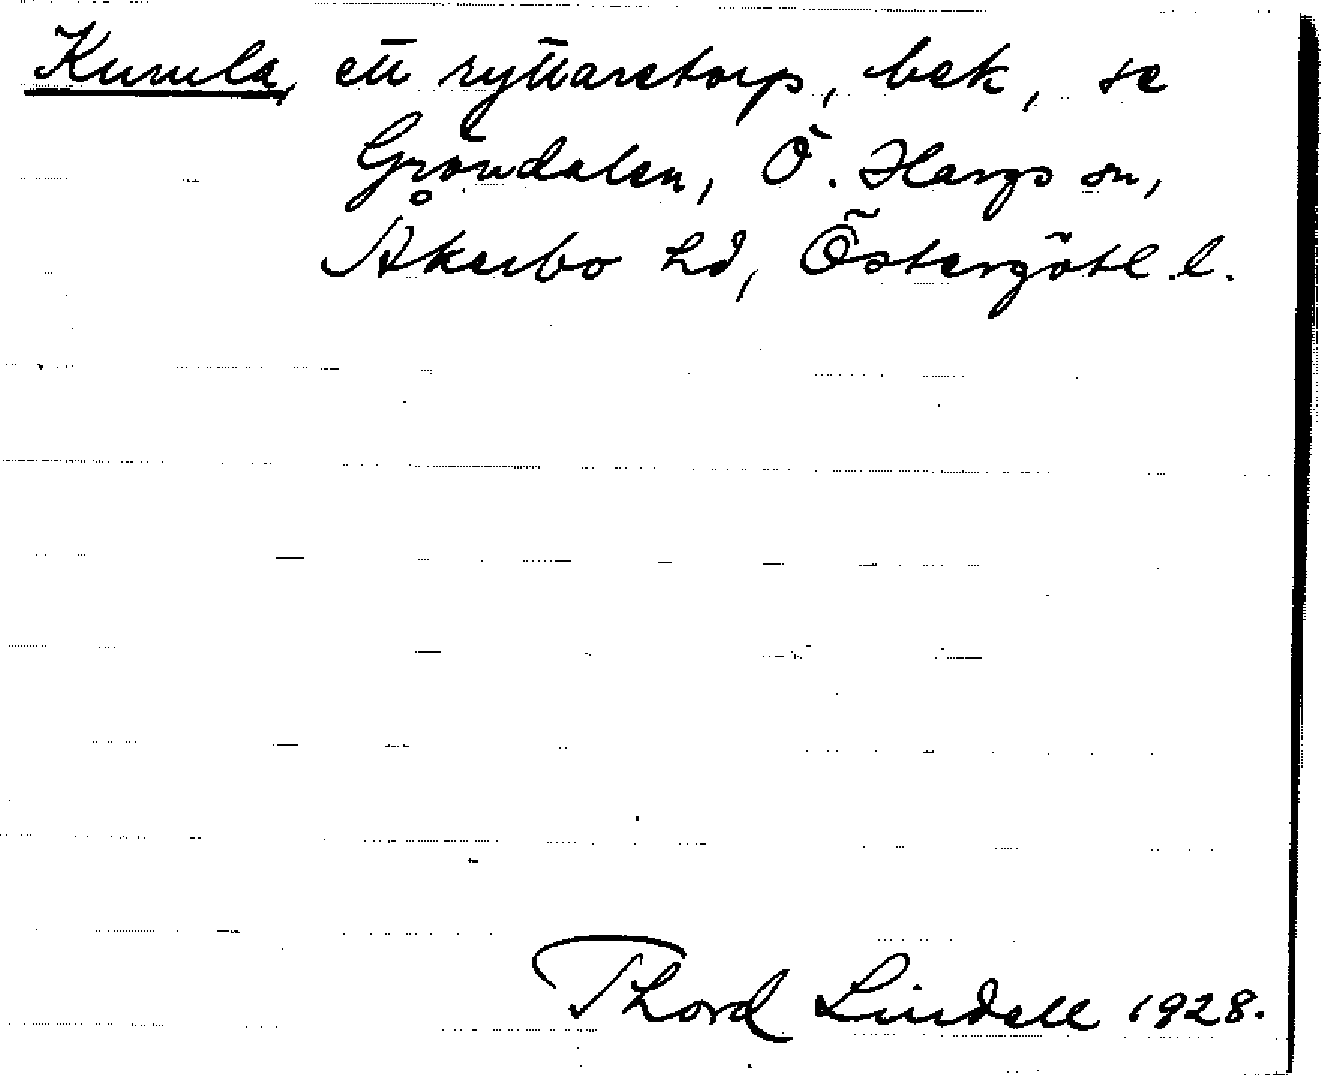 Kumla, ett ryttaretorp, bek, se
Gröndalen, Ö. Hargs sn,
Åkerbo hd, Östergötl. l.
Thord Lindell 1928.